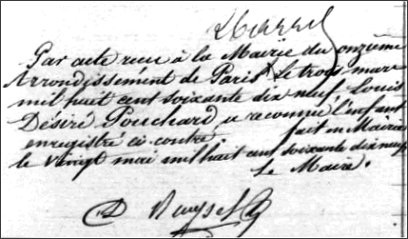 Par acte reçu à la Mairie du onzième
Arrondissement de Paris, le trois mars
mil huit cent soixante dix neuf, Louis
Désiré Pouchard a reconnu l'enfant
enregistré ci-contre. fait en Mairie
le vingt mai mil huit cent soixante dix neuf
Le Maire.